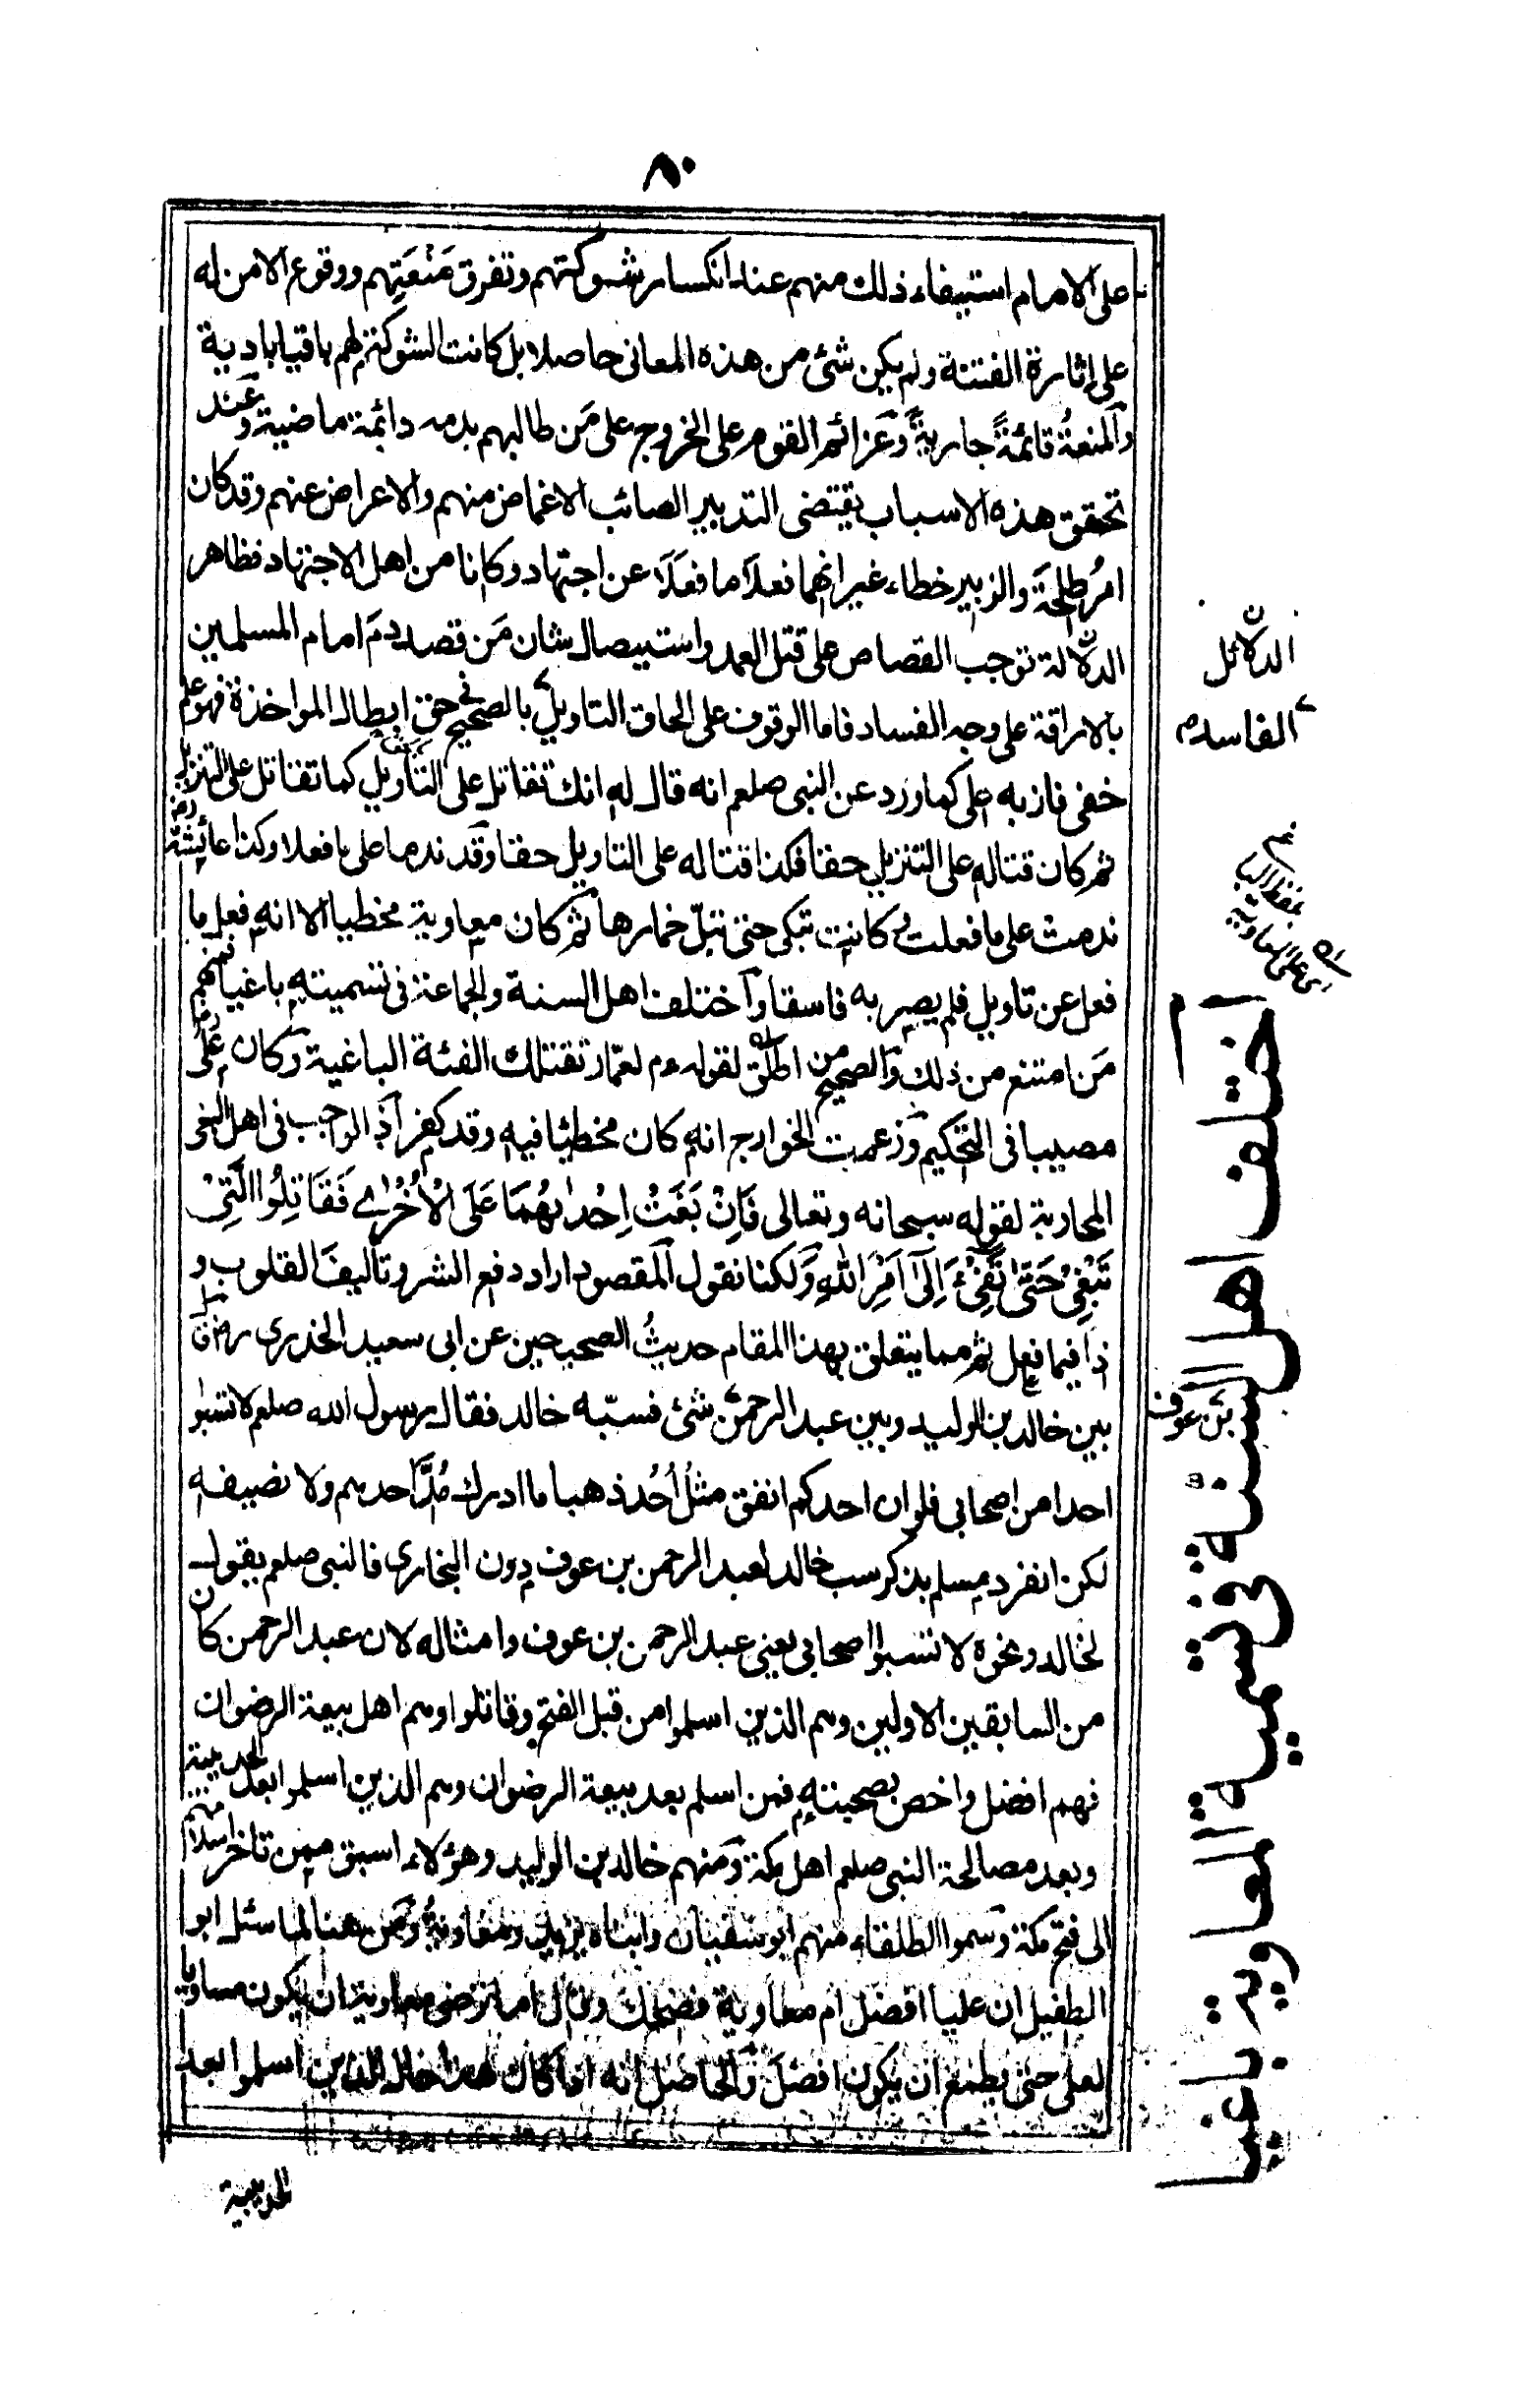 ٨٠
على الامام استيفاء ذلك منهم عند انكسار شوكتهم وتفرق مَنْعَتِهم ووقوع الامن له
على اثارة الفتنة ولم يكن شئ من هذه المعانى حاصلا بل كانت الشوكة لهم باقية بادية
والمنعةُ قائمةً جاريةً وعزائم القوم على الخروج على مَن طالبهم بدمه دائمة ماضية وعند
تحقق هذه الاسباب يقتضى التدبير الصائب الاغماض منهم والاعراض عنهم وقد كان
امرُ طلحة والزبير خطاء غير انهما فعلا ما فعلا عن اجتهاد وكانا من اهل الاجتهاد فظاهر
الدلالة توجب القصاص على قتل العمد واستيصال شان مَن قصد دمَ امام المسلمين
بالاراقة على وجه الفساد فاما الوقوف على الحاق التاويل بالصحيح فى حق ابطال المواخذة فهو علم
خفى فاز به على كما ورد عن النبى صلعم انه قال له انك تقاتل على التأويل كما تقاتل على التنزيل
ثم كان قتاله على التنزيل حقا فكذا قتاله على التاويل حقا وقد ندما على ما فعلا وكذا عائشة رض
ندمت على ما فعلت وكانت تبكى حتى تبلّ خمارها ثم كان معاوية مخطيا الا انه فعل ما
فعل عن تاويل فلم يصر به فاسقا واختلف اهل السنة والجماعة فى تسميته باغيا فمنهم
مَن امتنع من ذلك والصحيح من اطلق لقوله ءم لعمّار تقتلك الفئة الباغية وكان على رض
مصيبا فى التحكيم وزعمت الخوارج انه كان مخطيئا فيه وقد كفر اذ الواجب فى اهل البغى
المحاربة لقوله سبحانه وتعالى فَاِنْ بَغَتْ اِحْدٰىهُمَا عَلَى الْاُخْرٰى فَقَاتِلُوا الَّتِىْ
تَبْغِىْ حَتّٰى تَفِىْءَ اِلٰى اَمْرِ اللهِ ولكنا نقول المقصود اراد دفع الشر وتأليف القلوب و
ذا فيما فعل ثم مما يتعلق بهذا المقام حديثُ الصحيحين عن ابى سعيد الخدرى رض قال
بين خالد بن الوليد وبين عبد الرحمن شئ فسبّه خالد فقال رسول الله صلعم لا تسبوا
احدا من اصحابى فلو ان احدكم انفق مثلُ اُحُد ذهبا ما ادرك مُدَّ احدهم ولا نصيفه
لكن انفرد مسلم بذكر سب خالد لعبد الرحمن بن عوف دون البخارى فالنبى صلعم يقول
لخالد ونحوه لا تسبوا اصحابى يعنى عبد الرحمن بن عوف وامثاله لان عبد الرحمن كان
من السابقين الاولين وهم الذين اسلموا من قبل الفتح وقاتلوا وهم اهل بيعة الرضوان
فهم افضل واخص بصحبته فمن اسلم بعد بيعة الرضوان وهم الذين اسلموا بعد الحديبية
وبعد مصالحة النبى صلعم اهل مكة ومنهم خالد بن الوليد وهؤلاء اسبق ممن تاخر اسلامهم
الى فتح مكة وسموا الطلقاء منهم ابو سفيان وابناه يزيد ومعاوية ومن هنا لما سئل ابو
الطفيل ان عليا افضل ام معاوية فضحك وقال اما ترضى معاوية ان يكون مساويا
لعلى حتى يطمع ان يكون افضل والحاصل انه اذا كان هذا حال الذين اسلموا بعد
الحديبية
الدلائل
الفاسدة
بن عوف
اختلف اهل السنة فى تسمية المعاوية باغيا